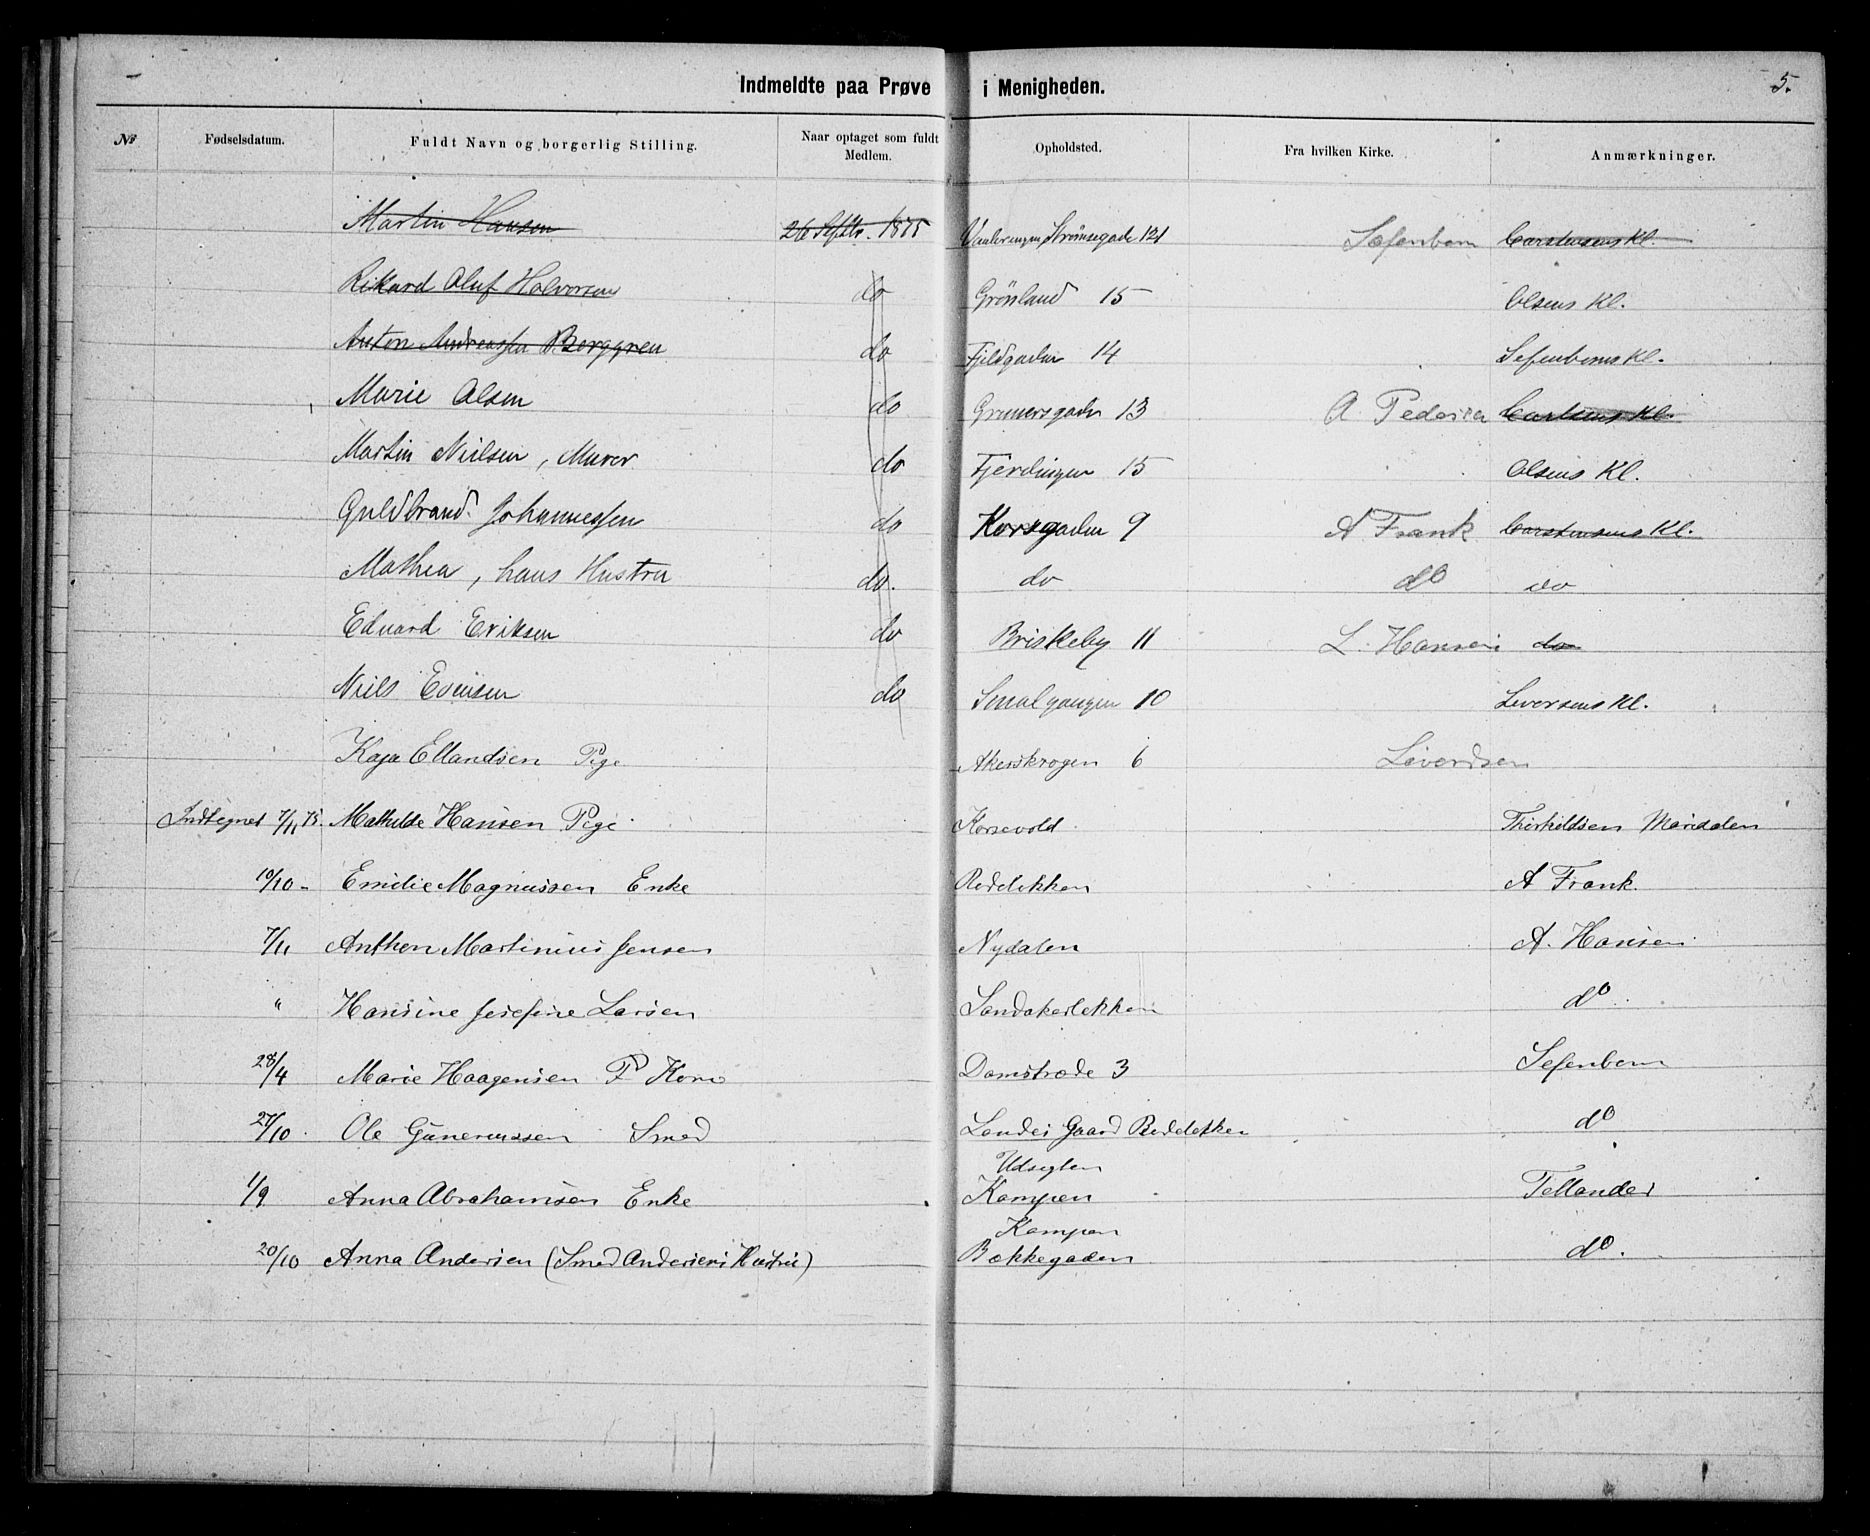 Indmeldte paa Prøve i Menigheden.
5.
№ Fødselsdatum. Fuldt Navn og borgerlig Stilling. Naar optaget som fuldt Medlem. Opholdsted. Fra hvilken Kirke. Anmærkninger.
Martin Hansen 26 Septbr. 1875 Strömsegade 121 Sefenbom Carstensens Kl.
Rikard Oluf Halvorsen do Grönland 15 Olsens Kl.
Anton Andreassen Berggren do Fjeldgaden 14 Sefenboms Kl.
Marie Olsen do Grunersgaden 13 A. Pedersen Kl.
Martin Nielsen, Murer do Fjerdingen 15 Olsens Kl.
Guldbrand Johannessen do Korsgaden 9 A Frank Carstensens Kl.
Mathea, hans Hustru do. do do do
Eduard Eriksen do Briskeby 11 L. Hansen do
Niels Evensen do Smalgangen 10 Seversens Kl.
Kaja Ellandsen Pige Akerskrogen 6 Siverdsen
Indtegnet 7/11 75. Mathilde Hansen Pige Korsvold Thorkildsen Maridalen
10/10 - Emilie Magnussen Enke Rodelökken A Frank.
7/11 Anthon Martinius Jensen Nydalen A. Hansen
" Hansine Josefine Larsen Sandakerlökken do.
28/4 Marie Haagensen P Kone Damstræde 3 Sefenbom
27/10. Ole Gunerussen Smed Landes Gaard Rodelökken do
Udsigten
1/9 Anna Abrahamsen Enke Kampen Tellander
Kampen
20/10 Anna Andersen (Smed Andersens Hustru) Bækkegaden do.